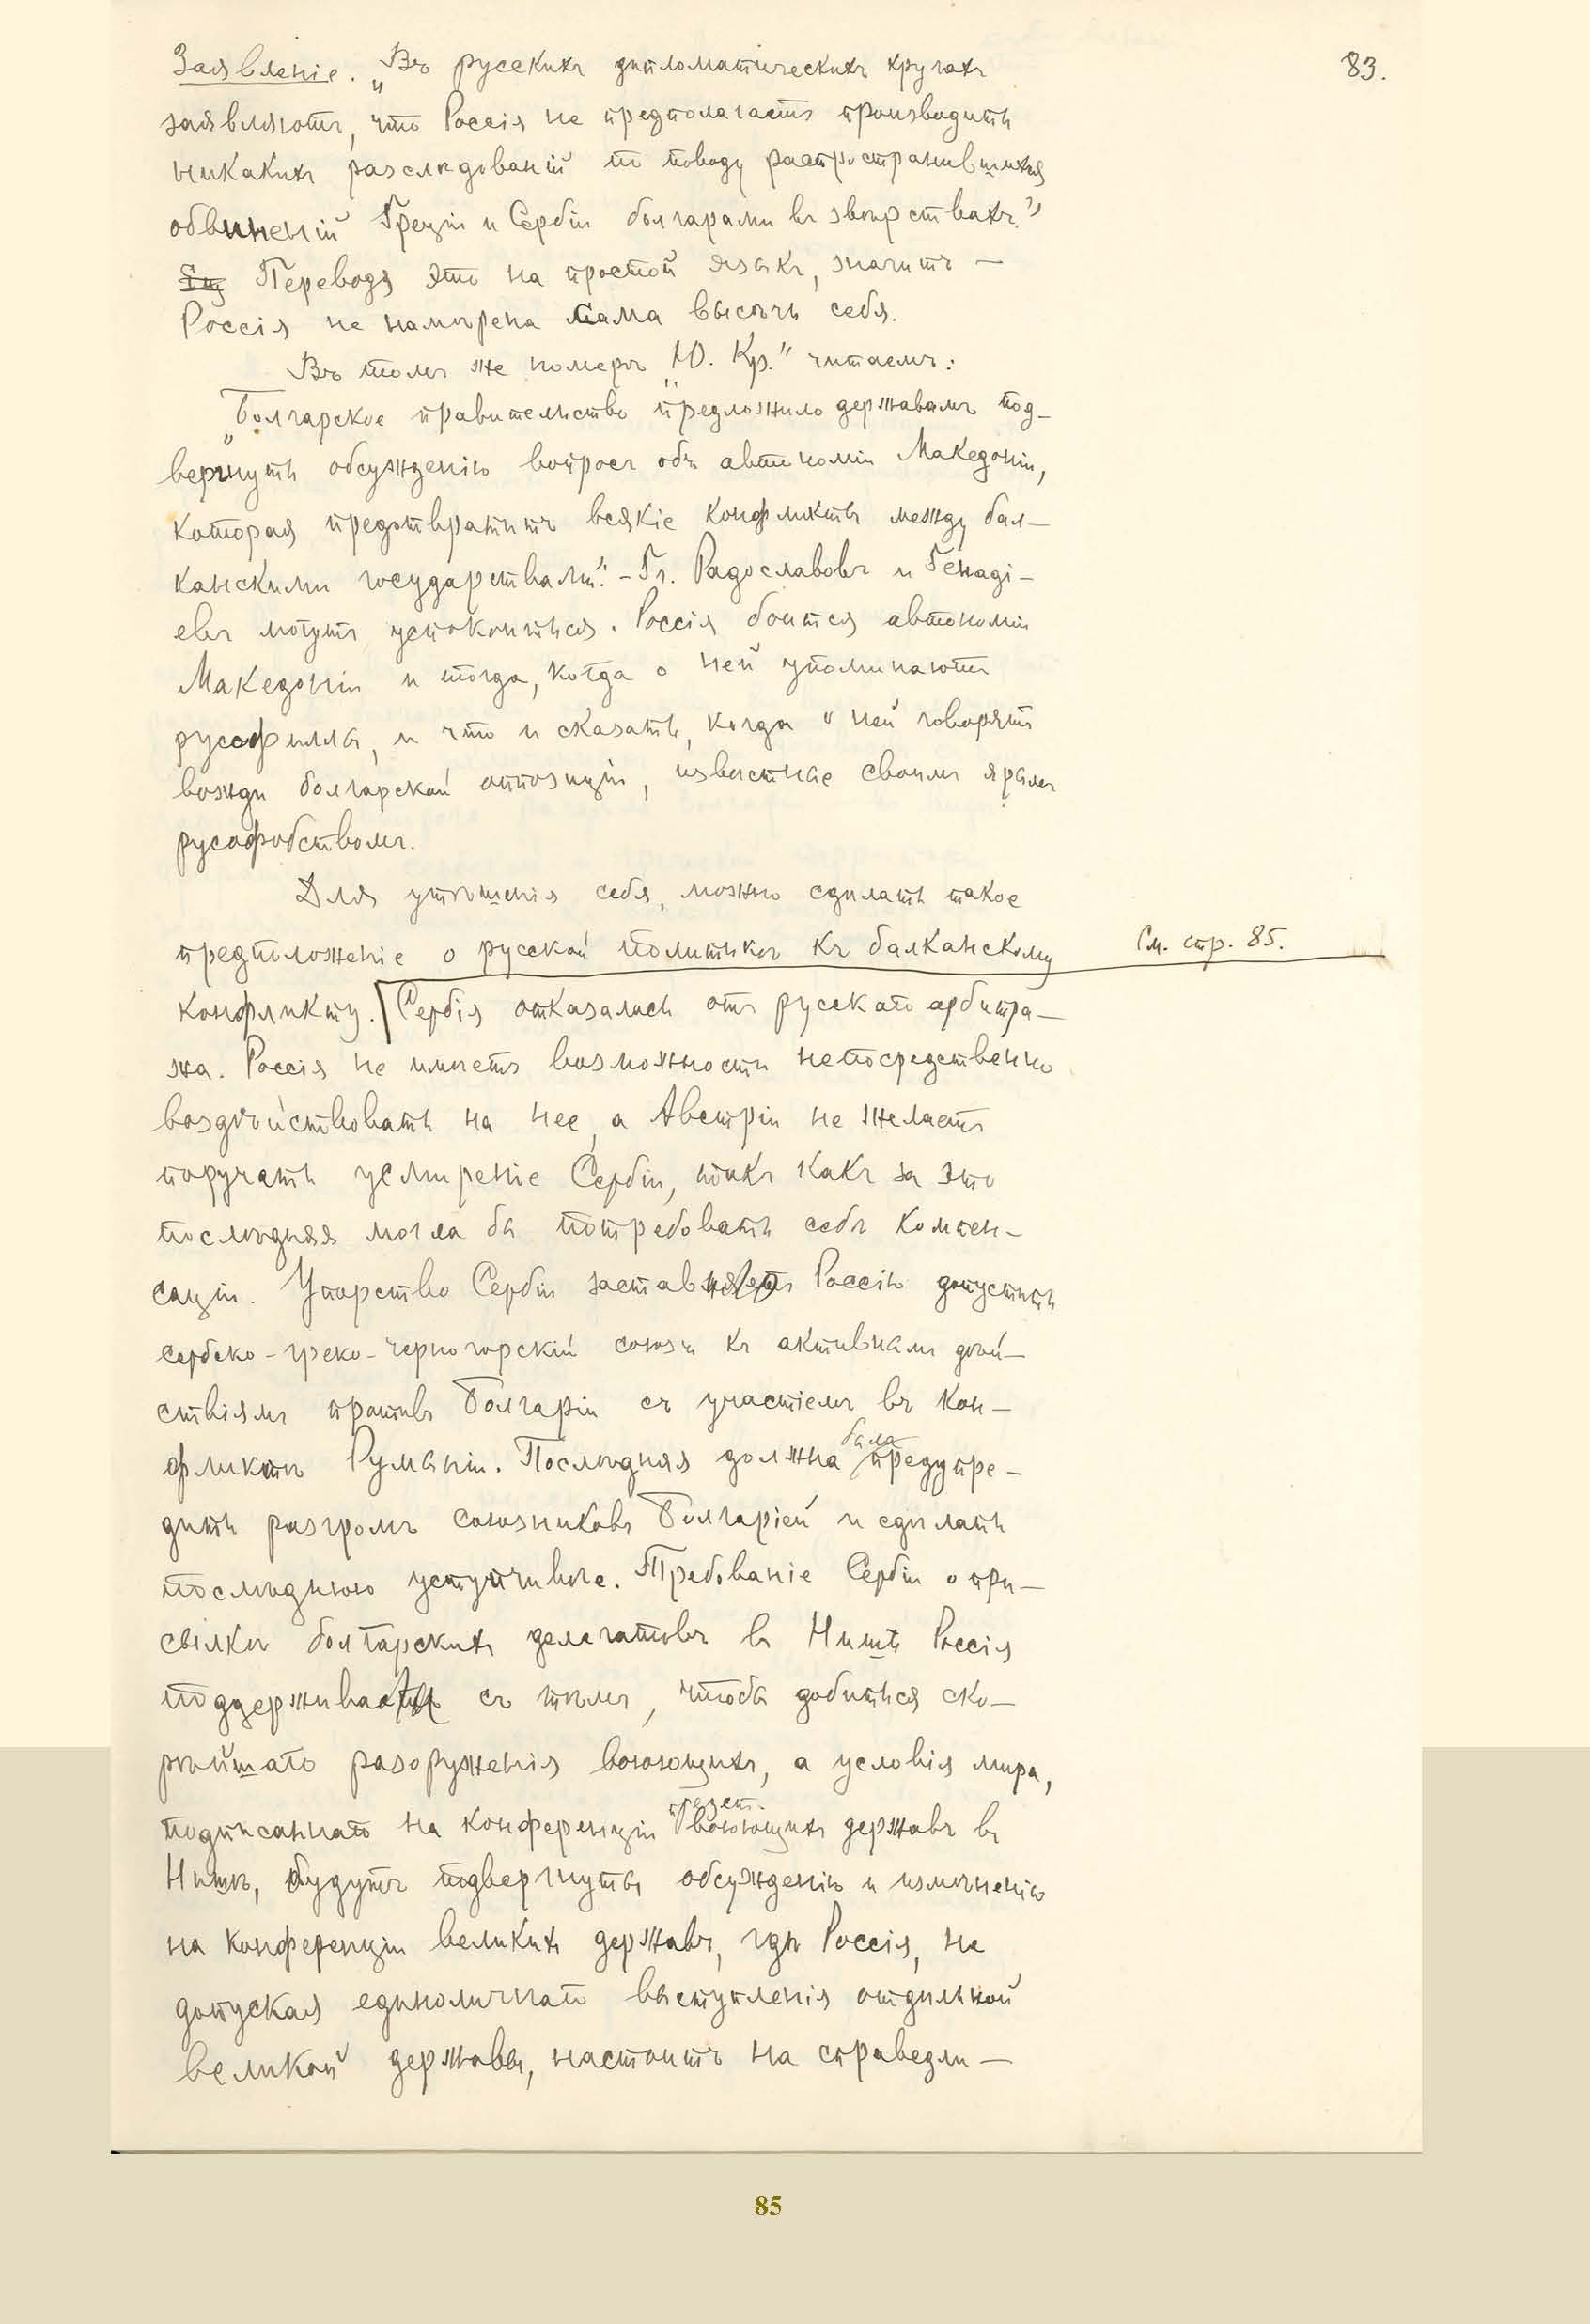 83.
Заявленіе. „Въ русскихъ дипломатическихъ кругахъ
заявляютъ, что Россія не предполагаетъ производить
никакихъ разслѣдованій по поводу распространившихся
обвиненій Греціи и Сербіи болгарами въ звѣрствахъ.”
Переводя это на простой языкъ, значитъ —
Россія не намѣрена сама высѣчь себя.
Въ томъ же номерѣ „Ю. Кр.” читаемъ:
„Болгарское правительство предложило державамъ под-
вергнуть обсужденію вопросъ объ автономіи Македоніи,
которая предотвратитъ всякіе конфликты между бал-
канскими государствами”. - Гг. Радославовъ и Генадi-
евъ могутъ успокоиться. Россія боится автономіи
Македоніи и тогда, когда о ней упоминаютъ
русофилы, и что и сказать, когда о ней говорятъ
вожди болгарской оппозиціи, извѣстные своимъ ярымъ
русофобствомъ.
Для утѣшенія себя, можно сдѣлать такое
предположеніе о русской политикѣ къ балканскому
См. стр. 85.
конфликту. Сербія отказалась отъ русскаго арбитра-
жа. Россія не имѣетъ возможности непосредственно
воздѣйствовать на нее, а Австріи не желаетъ
поручать усмиреніе Сербіи, такъ какъ за это
послѣдняя могла бы потребовать себѣ компен-
саціи. Упорство Сербіи Россію допустить
сербско-греко-черногорскій союзъ къ активнымъ дѣй-
ствіямъ противъ Болгаріи съ участіемъ въ кон-
фликтѣ Румыніи. Послѣдняя должна была предупре-
дить разгромъ союзниковъ Болгаріей и сдѣлать
послѣднюю уступчивѣе. Требованіе Сербіи о при-
сылкѣ болгарскихъ делегатовъ въ Нишъ Россія
съ тѣмъ, чтобы добиться ско-
рѣйшаго разоруженія воюющихъ, а условія мира,
подписаннаго на конференціи предст. воюющихъ державъ въ
Нишѣ, будутъ подвергнуты обсужденію и измѣненію
на конференціи великихъ державъ, гдѣ Россія, не
допуская единоличнаго выступленія отдѣльной
великой державы, настоитъ на справедли-
85